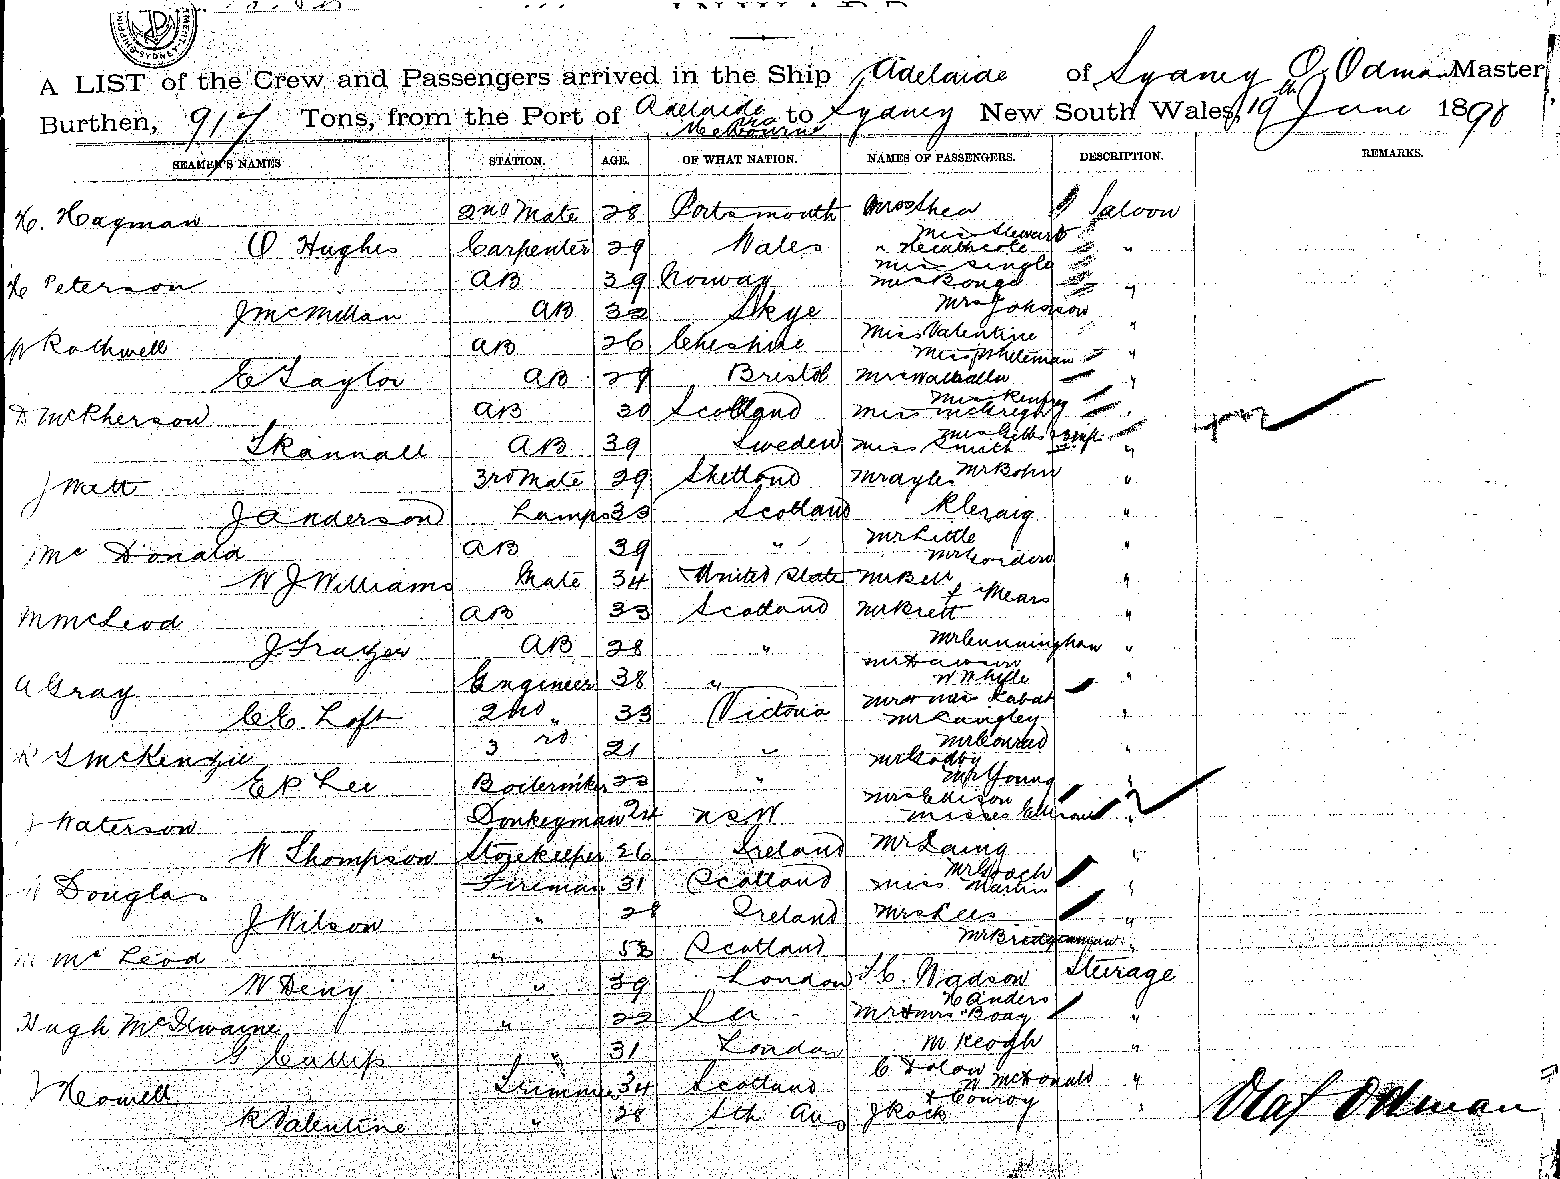 INWARD
A LIST of the Crew and Passengers arrived in the Ship Adelaide of Sydney O. Odman Master
Burthen, 917 Tons, from the Port of Adelaide via Melbourne to Sydney New South Wales, 19th June 1890
SEAMEN'S NAMES STATION. AGE. OF WHAT NATION. NAMES OF PASSENGERS. DESCRIPTION. REMARKS.
H. Hayman 2nd Mate 28 Portsmouth Mrs Shea Saloon
Miss Stewart
O Hughes Carpenter 29 Wales " Heathcote "
Miss Single
H Peterson AB 39 Norway "
Mrs Johnson
J McMillan AB 32 Skye "
W Rothwell AB 26 Cheshire Miss Valentine "
Miss Whiteman
E Taylor AB 29 Bristol "
D McPherson AB 30 Scotland Miss McGregor "
Skannall AB 39 Sweden Miss Smith "
J Matt 3rd Mate 29 Shetland Mr Bohn "
J Anderson Lamps 33 Scotland "
Mc Donald AB 39 " Mr Little "
Mr Cordero
W J Williams Mate 34 United State Mr Bell "
" Mears
M McLeod AB 33 Scotland Mr Brett "
Mr Cunningham
J Frazer AB 28 " "
A Gray Engineer 38 " "
C E Loft 2nd " 33 Victoria Mr Langley "
Mr Conrad
S McKenzie 3rd 21 " Mr Godby "
Mr Young
E P Lee 23 " "
Mrs Edison
Waterson Donkeyman 24 NSW Misses "
W Thompson Storekeeper 26 Ireland Mr Laing "
Douglas Fireman 31 Scotland Miss Martin "
J Wilson " 28 Ireland Mrs Lees "
Mc Leod " 52 Scotland "
W Deny " 39 London Wadson Steerage
H Anders
Hugh McIlwaine " 22 Mr & Mrs Boag "
G " 31 London M Keogh "
W McDonald
J Howell Trimmer 34 Scotland C "
Conroy
R Valentine " 28 Sth Aus J Rock "
Olaf Odman